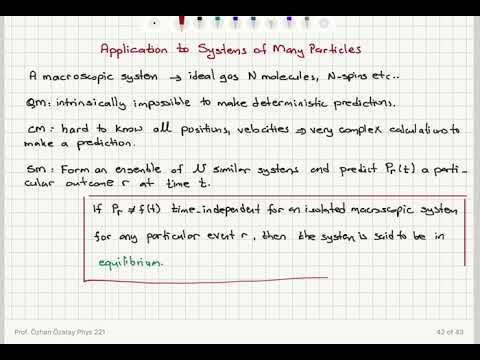 Application to Systems of Many Particles
A macroscopic system → ideal gas N molecules, N-spins etc..
QM: intrinsically impossible to make deterministic predictions.
CM: hard to know all positions, velocities ⇒ very complex calculations to
make a prediction.
SM: Form an ensemble of N similar systems and predict Pr(t) a parti-
cular outcome r at time t.
If Pr ≠ f(t) time-independent for an isolated macroscopic system
for any particular event r, then the system is said to be in
equilibrium.
Prof. Özhan Özatay Phys 221
42 of 43